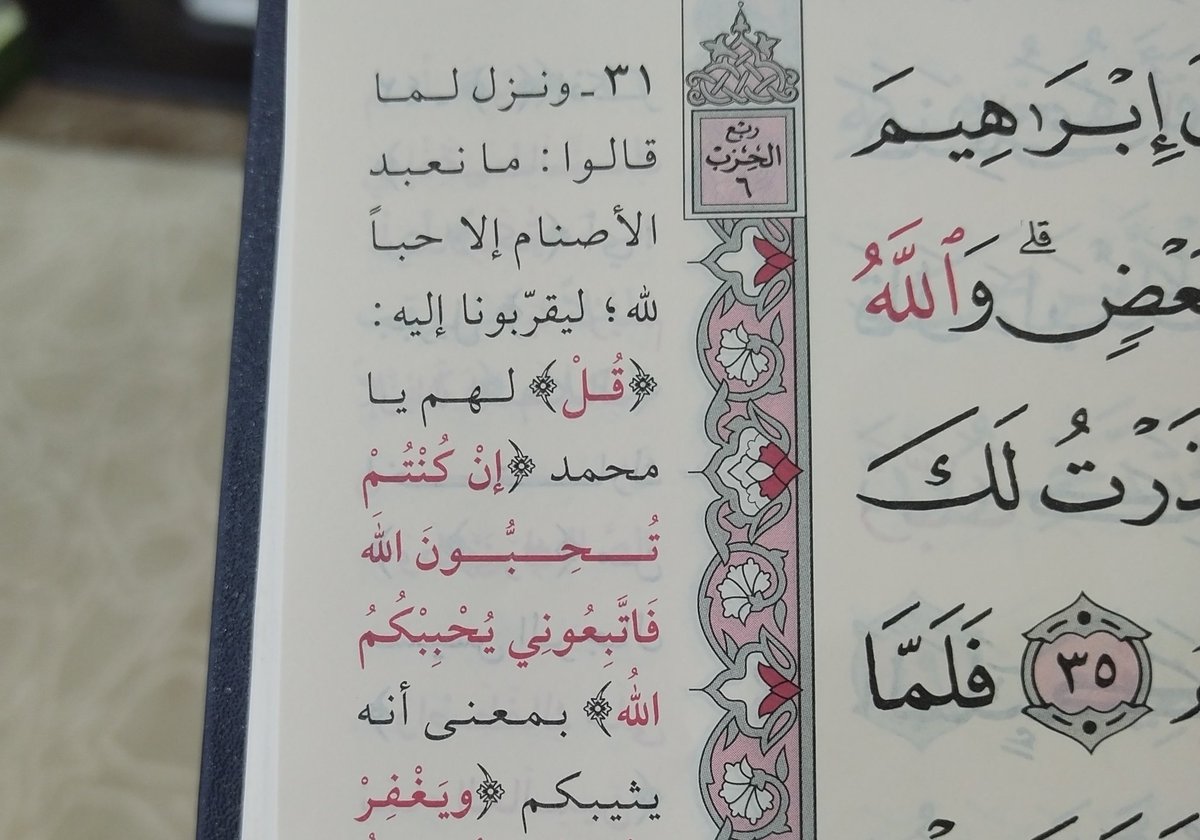 إِبْرَاهِيمَ
وَٱللَّهُ
ذَرْتُ لَكَ
٣٥ فَلَمَّا
ربع
الحزب
٦
٣١ـ ونزل لما
قالوا: ما نعبد
الأصنام إلا حباً
لله؛ ليقرّبونا إليه:
﴿قُلْ﴾ لهم يا
محمد ﴿إِنْ كُنْتُمْ
تُحِبُّونَ اللهَ
فَاتَّبِعُونِي يُحْبِبْكُمُ
اللهُ﴾ بمعنى أنه
يثيبكم ﴿ويَغْفِرْ